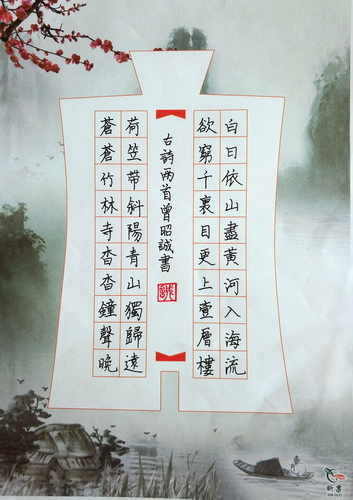 白日依山盡黃河入海流
欲窮千裏目更上壹層樓
古詩兩首曾昭誠書
荷笠帶斜陽青山獨歸遠
蒼蒼竹林寺杳杳鐘聲晚